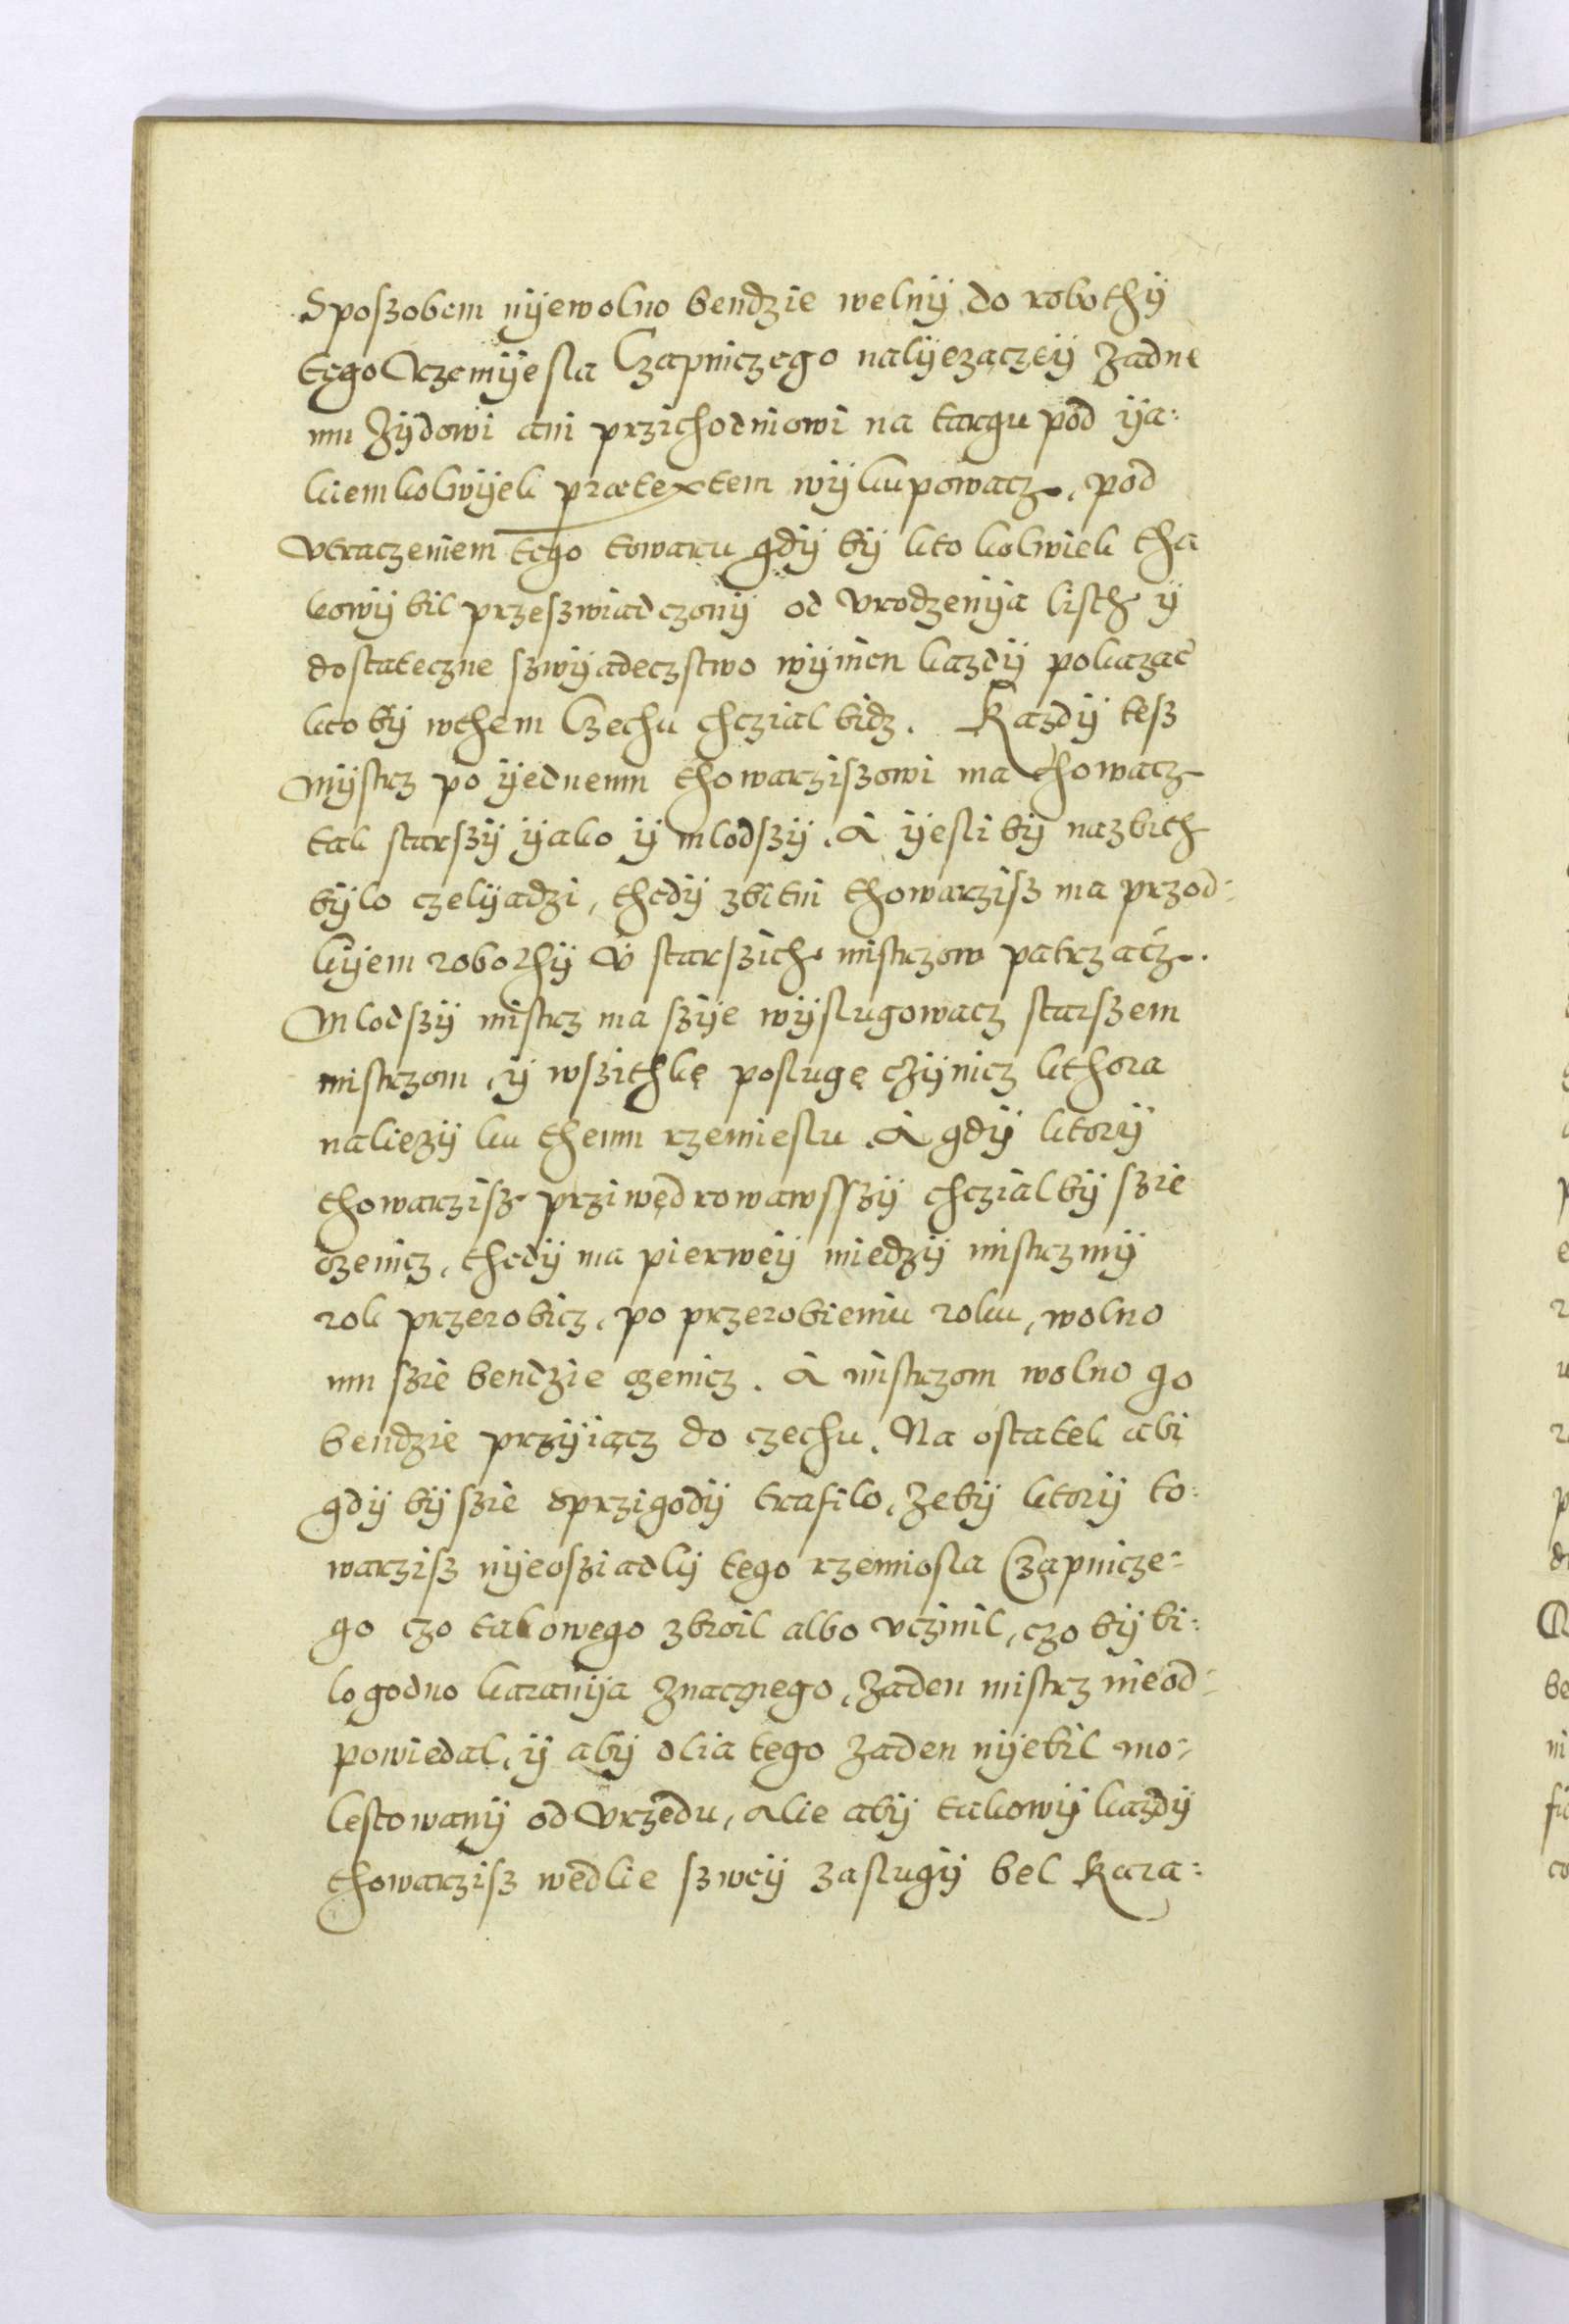 Sposzobem nÿewolno bendzie welnÿ do robothÿ
tęgo Rzemÿesla Czapniczego nalÿezączeÿ Zadne
mu Zÿdowi ani przichodniowi na targu pod ÿa:
kiemkolwÿek prætextem wÿkupowacz, pod
vtraczeniem tęgo towaru gdÿ bÿ kto kolwiek tha
kowÿ bil przeszwiadczonÿ od vrodzenÿa listh ÿ
dostateczne szwÿadeczstwo wÿinen kazdÿ pokazac
kto bÿ wthem Czechu chczial bidz. Kazdÿ tesz
mÿstrz po ÿednemu thowarziszowi ma chowacz
tak starszÿ ÿako ÿ mlodszÿ. A ÿesli bÿ nazbith
bÿlo czelÿadzi, thedÿ zbitni thowarzisz ma przod:
kÿem robothÿ v starszich mistrzow patrzacz.
Mlodszÿ mistrz ma szÿe wÿslugowacz starszem
mistrzom, ÿ wszithkę poslugę czÿnicz kthora
naliezÿ ku themu rzemieslu. A gdÿ ktorÿ
thowarzisz prziwędrowawsszÿ chczialbÿ szie
ozenicz, thedÿ ma pierweÿ miedzÿ mistrzmÿ
rok przerobicz, po przerobieniu roku, wolno
mu szie bendzie ozenicz. A mistrzom wolno go
bendzie przÿiącz do czechu. Na ostatek abi
gdÿ bÿ szie sprzigodÿ trafilo, zebÿ ktorÿ to:
warzisz nÿeosziadlÿ tego rzemiosla Czapnicze:
go czo takowego zbroil albo vczinil, czo bÿ bi:
lo godno karanÿa znacznego, zaden mistrz nieod:
powiedal, ÿ abÿ dlia tego zaden nÿebil mo:
lestowanÿ od Vrzedu, alie abÿ takowÿ kazdÿ
thowarzisz wedlie szweÿ zaslugÿ bel Kara: